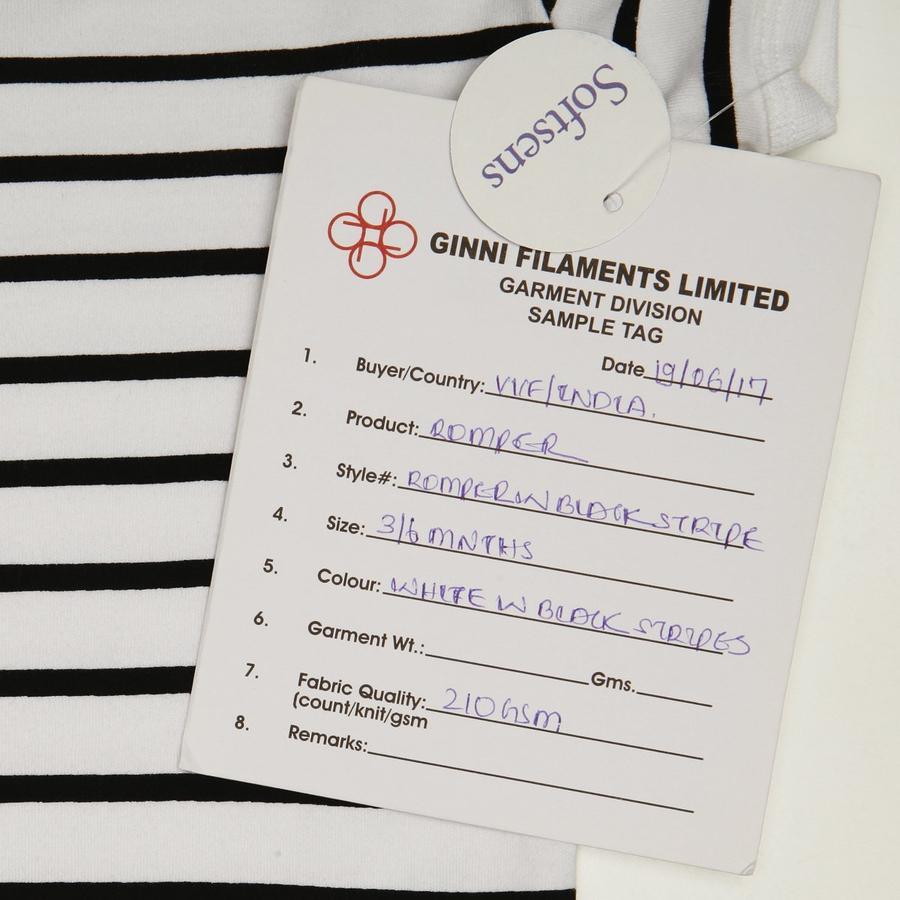 Softsens
GINNI FILAMENTS LIMITED
GARMENT DIVISION
SAMPLE TAG
Date 19/06/17
1. Buyer/Country: VVF/INDIA.
2. Product: ROMPER
3. Style#: ROMPER W BLACK STRIPE
4. Size: 3/6 MNTHS
5. Colour: WHITE W BLACK STRIPES
6. Garment Wt.: Gms.
7. Fabric Quality: 210 GSM
(count/knit/gsm
8. Remarks: